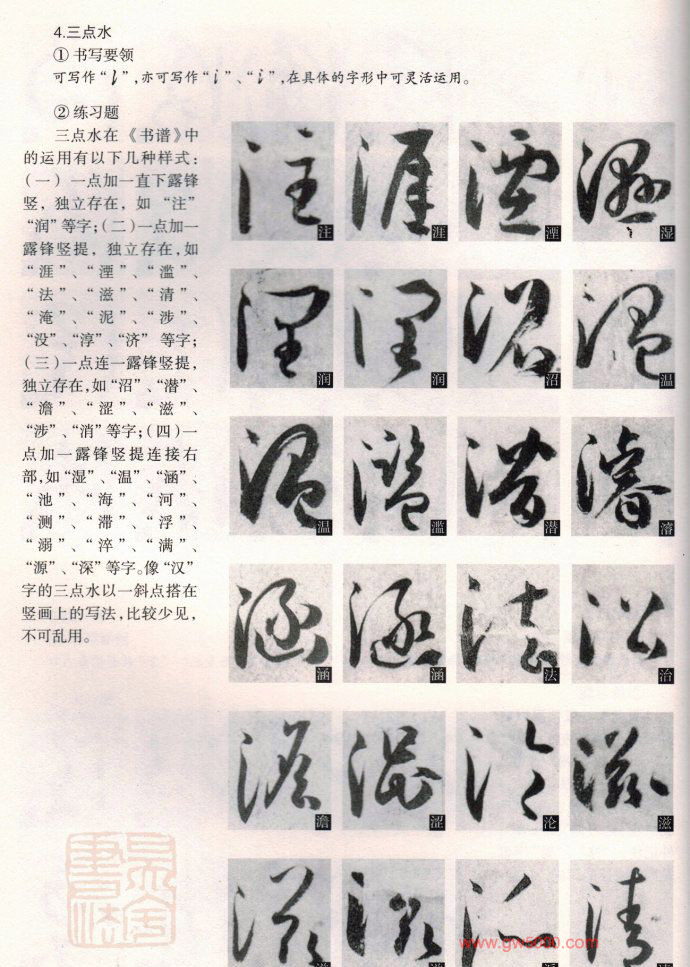 4.三点水
① 书写要领
可写作“丨”,亦可写作“氵”、“氵”,在具体的字形中可灵活运用。
② 练习题
三点水在《书谱》中
的运用有以下几种样式:
(一) 一点加一直下露锋
竖, 独立存在, 如 “注”
“润”等字;(二)一点加一
露锋竖提, 独立存在,如
“涯”、“湮”、“滥”、
“法”、“滋”、“清”、
“淹”、“泥”、“涉”、
“没”、“淳”、“济” 等字;
(三)一点连一露锋竖提,
独立存在,如“沼”、“潜”、
“澹”、“涩”、“滋”、
“涉”、“消”等字;(四)一
点加一露锋竖提连接右
部,如“湿”、“温”、“涵”、
“池”、“海”、“河”、
“测”、“滞”、“浮”、
“溺”、“淬”、“满”、
“源”、“深”等字。像“汉”
字的三点水以一斜点搭在
竖画上的写法,比较少见,
不可乱用。
注 涯 湮 湿
润 润 沼 温
温 滥 潜 濬
涵 涵 法 治
澹 涩 沦 滋
www.gw5000.com